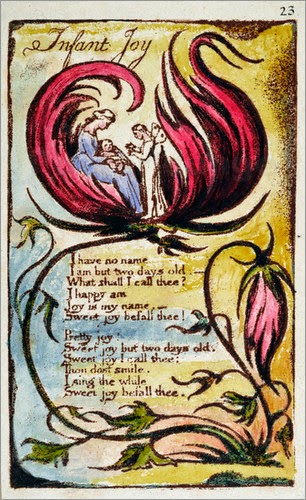 23
Infant Joy
I have no name
I am but two days old —
What shall I call thee?
I happy am
Joy is my name, —
Sweet joy befall thee!
Pretty joy!
Sweet joy but two days old.
Sweet joy I call thee;
Thou dost smile.
I sing the while
Sweet joy befall thee.